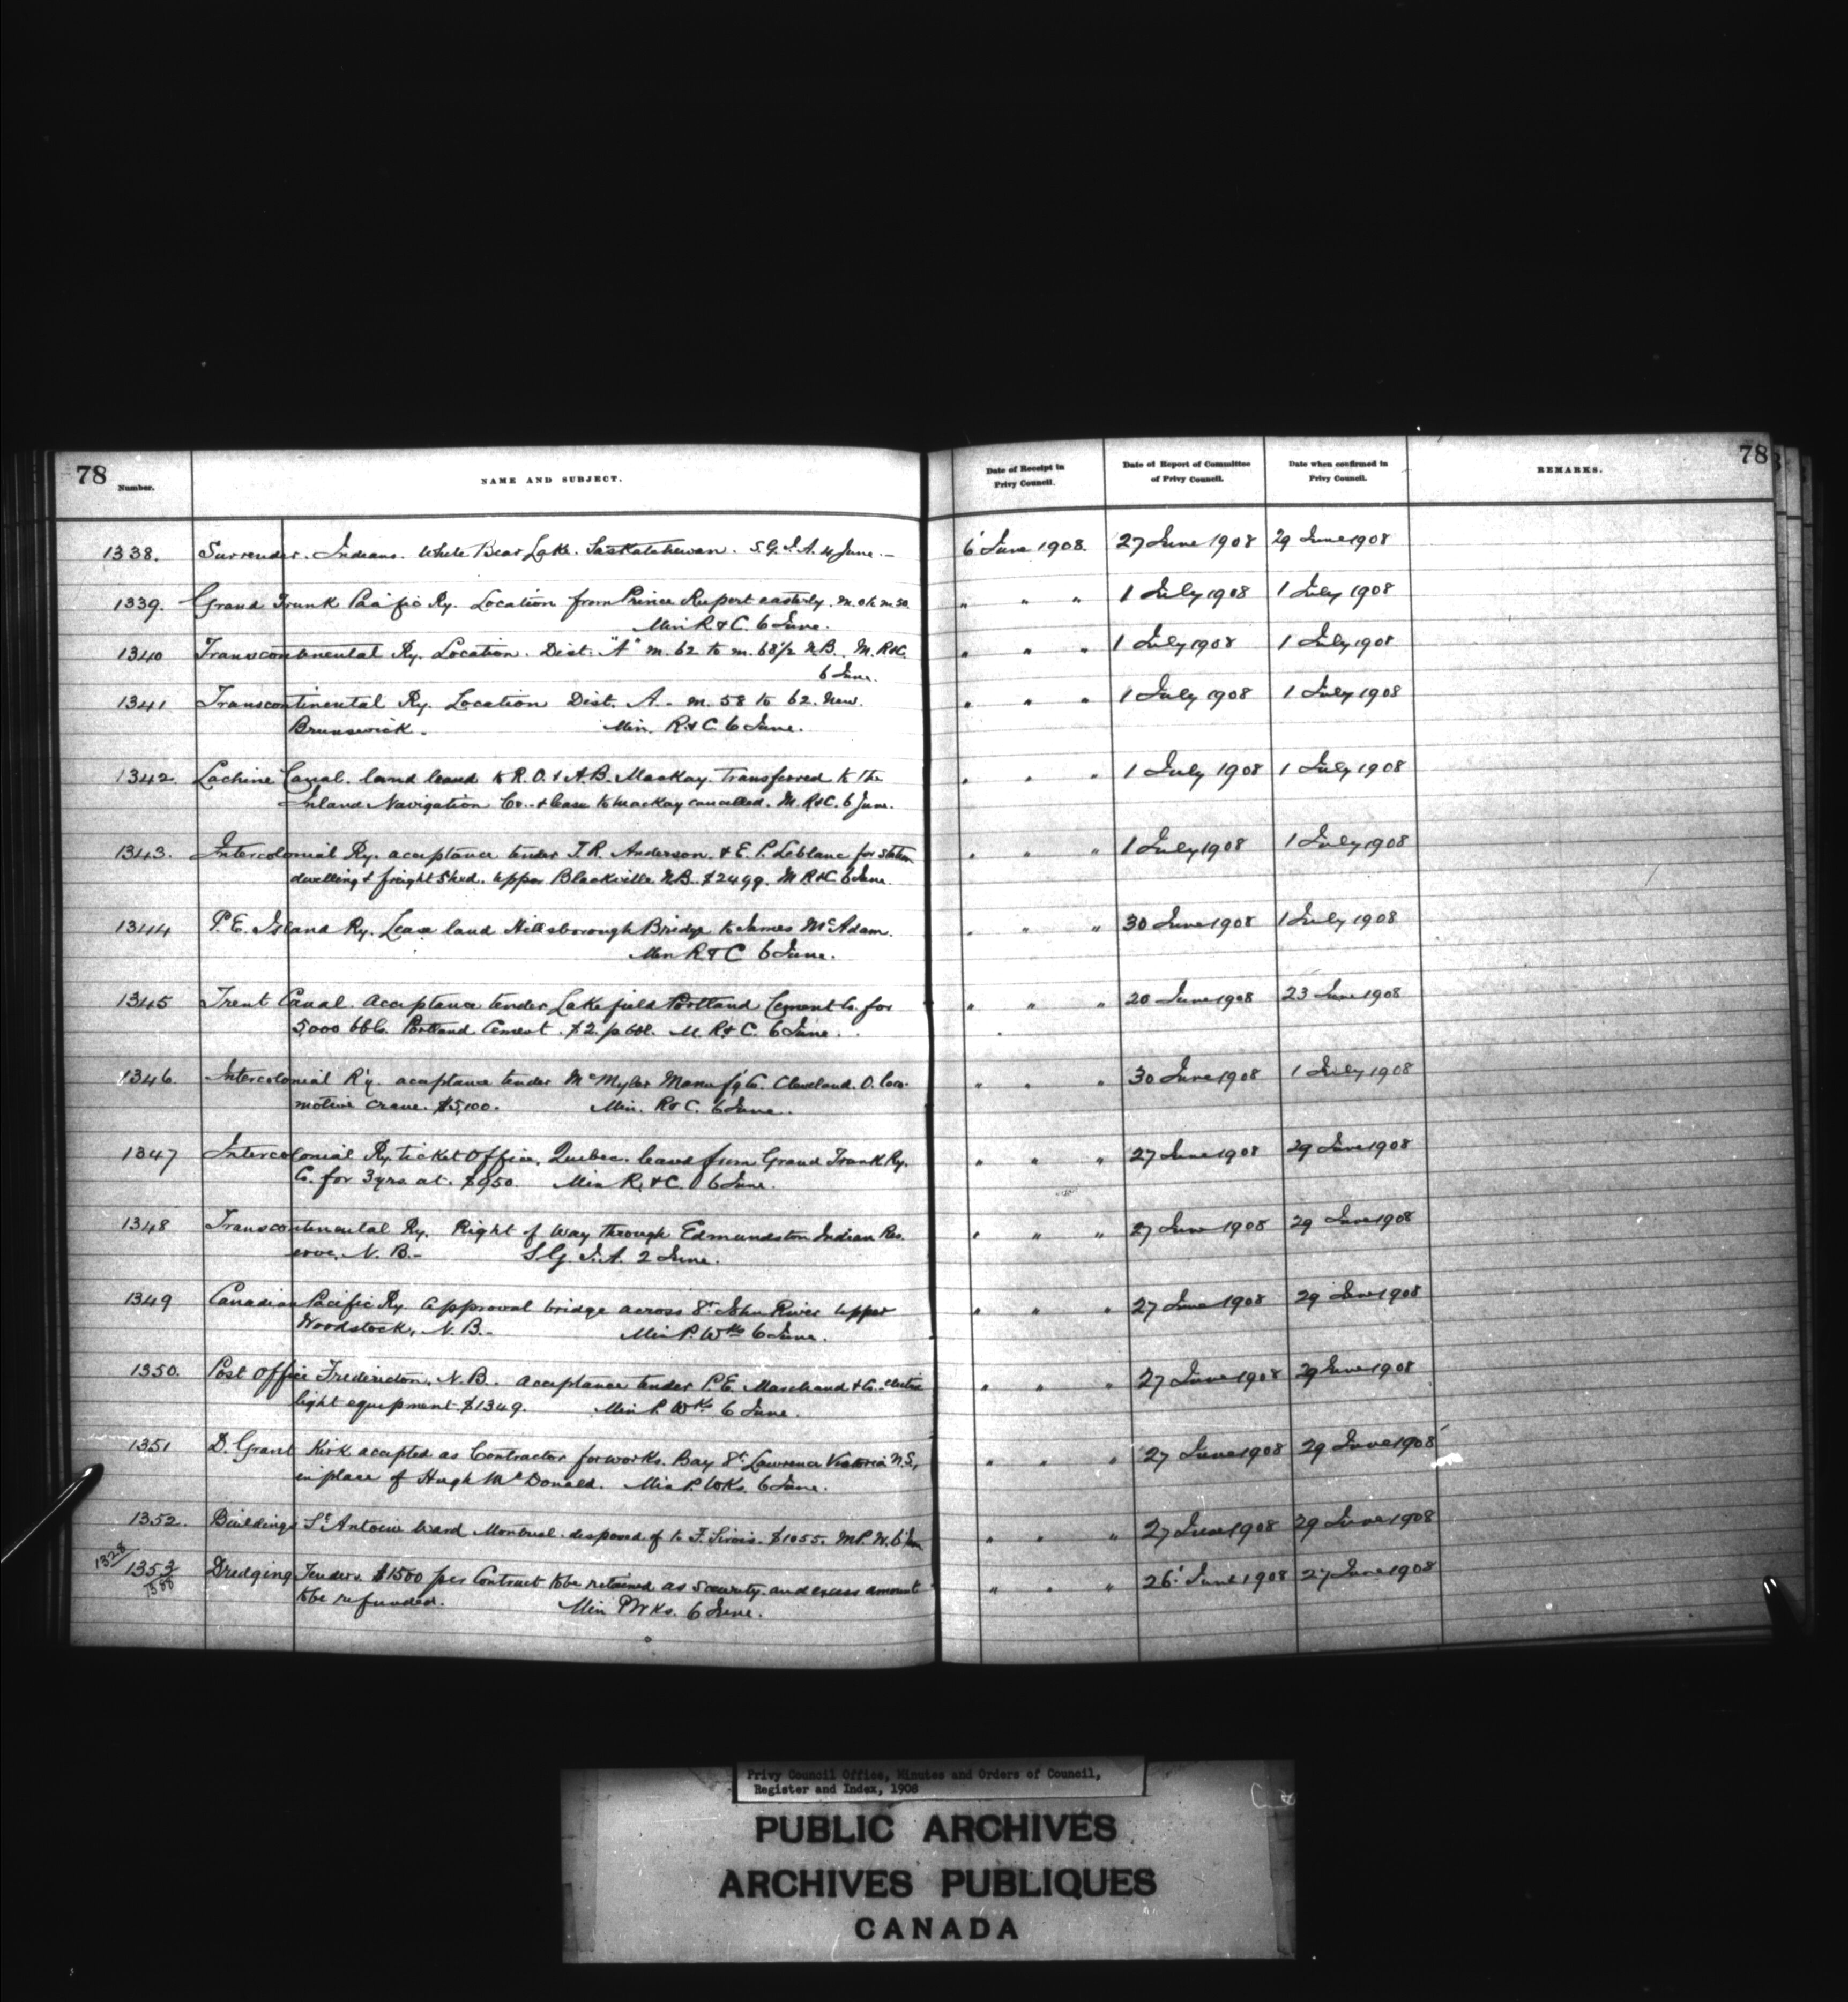 78
Number.
NAME AND SUBJECT.
Date of Receipt in Privy Council.
Date of Report of Committee of Privy Council.
Date when confirmed in Privy Council.
REMARKS.
78
1338. Surrender. Indians. White Bear Lake. Saskatchewan. S.G.I.A. 4 June. — 6 June 1908. 27 June 1908 29 June 1908
1339. Grand Trunk Pacific Ry. Location from Prince Rupert easterly. m. 0 to m. 50. " " " 1 July 1908 1 July 1908
Min R & C. 6 June.
1340 Transcontinental Ry. Location. Dist. "A" m. 62 to m. 68½ N.B. M. R&C. " " " 1 July 1908 1 July 1908
6 June.
1341 Transcontinental Ry. Location Dist. A. - m. 58 to 62. New " " " 1 July 1908 1 July 1908
Brunswick. Min. R. & C. 6 June.
1342 Lachine Canal. land leased to R.O. & A.B. Mackay. Transferred to the " " " 1 July 1908 1 July 1908
Inland Navigation Co. & lease to Mackay cancelled. M. R&C. 6 June.
1343. Intercolonial Ry. acceptance tender T.R. Anderson. & E.P. Leblanc for station " " " 1 July 1908 1 July 1908
dwelling & freight Shed. Upper Blackville N.B. $2499. M R&C. 6 June.
1344 P.E. Island Ry. Lease land Hillsborough Bridge to James McAdam. " " " 30 June 1908 1 July 1908
Min R & C 6 June.
1345 Trent Canal. acceptance tender Lakefield Portland Cement Co. for " " " 20 June 1908 23 June 1908
5,000 bbls. Portland Cement. $2. p bbl. M. R & C. 6 June.
1346. Intercolonial R'y. acceptance tender McMyler Manufg Co. Cleveland. O. loco- " " " 30 June 1908 1 July 1908
motive crane. $5,100. Min. R & C. 6 June.
1347 Intercolonial Ry. ticket Office, Quebec. leased from Grand Trunk Ry. " " " 27 June 1908 29 June 1908
Co. for 3 yrs at. $950. Min R. & C. 6 June.
1348 Transcontinental Ry. Right of Way through Edmundston Indian Res- " " " 27 June 1908 29 June 1908
erve, N.B. - S.G. I.A. 2 June.
1349 Canadian Pacific Ry. Approval bridge across St John River Upper " " " 27 June 1908 29 June 1908
Woodstock, N.B. - Min P. Wks 6 June.
1350. Post Office Fredericton, N.B. acceptance tender P.E. Marchand & Co. electric " " " 27 June 1908 29 June 1908
light equipment $1349. Min P. Wks 6 June.
1351 D. Grant Kirk accepted as Contractor for works. Bay St Lawrence Victoria N.S, " " " 27 June 1908 29 June 1908
in place of Hugh McDonald. Min P. Wks. 6 June.
1352. Buildings St Antoine Ward Montreal. disposed of to F. Sirois. $1055. M.P.W. 6 Jun " " " 27 June 1908 29 June 1908
1328
1353 Dredging Tenders. $1500 per Contract to be retained as Security. and excess amount " " " 26 June 1908 27 June 1908
to be refunded. Min P Wks. 6 June.
Privy Council Office, Minutes and Orders of Council,
Register and Index, 1908
PUBLIC ARCHIVES
ARCHIVES PUBLIQUES
CANADA